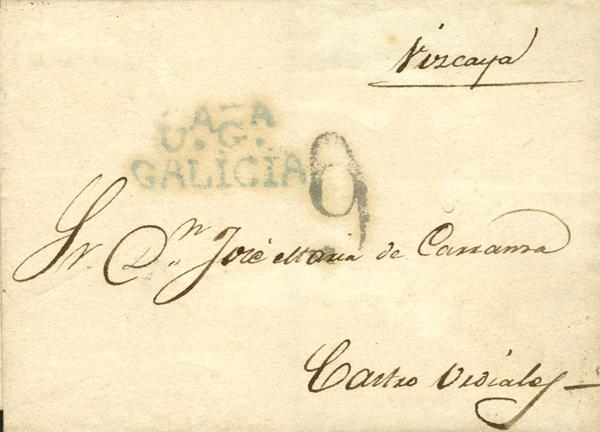 Vizcaya
A A
U. G.
GALICIA
9
Sr. Dn. José Maria de Carranza
Castro Vrdiales